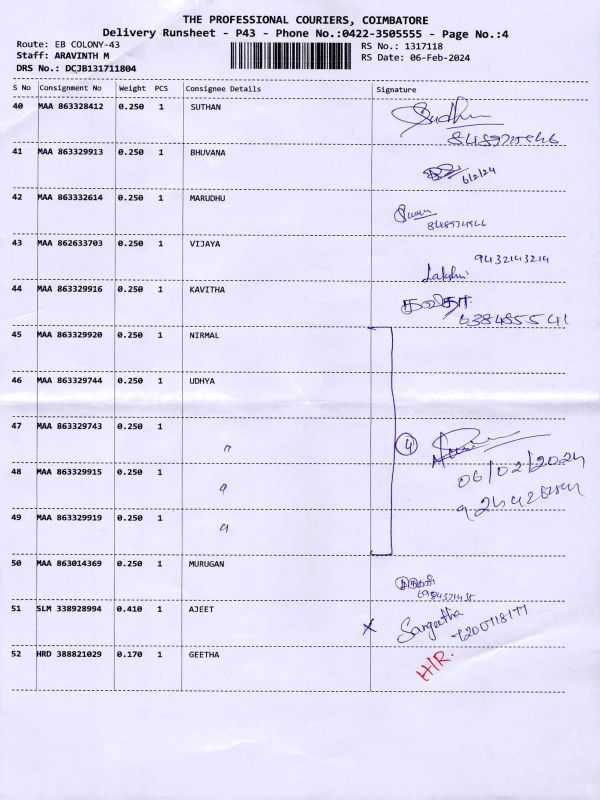 THE PROFESSIONAL COURIERS, COIMBATORE
Delivery Runsheet - P43 - Phone No.:0422-3505555 - Page No.:4
Route: EB COLONY-43 RS No.: 1317118
Staff: ARAVINTH M RS Date: 06-Feb-2024
DRS No.: DCJB131711804
S No Consignment No Weight PCS Consignee Details Signature
40 MAA 863328412 0.250 1 SUTHAN
41 MAA 863329913 0.250 1 BHUVANA
6/2/24
42 MAA 863332614 0.250 1 MARUDHU
43 MAA 862633703 0.250 1 VIJAYA
9432143214
Lakshmi
44 MAA 863329916 0.250 1 KAVITHA
கவிதா
45 MAA 863329920 0.250 1 NIRMAL
46 MAA 863329744 0.250 1 UDHYA
47 MAA 863329743 0.250 1 "
4
06/02/2024
48 MAA 863329915 0.250 1 "
49 MAA 863329919 0.250 1 "
50 MAA 863014369 0.250 1 MURUGAN
51 SLM 338928994 0.410 1 AJEET
X Sangeetha
52 HRD 388821029 0.170 1 GEETHA
H/R.